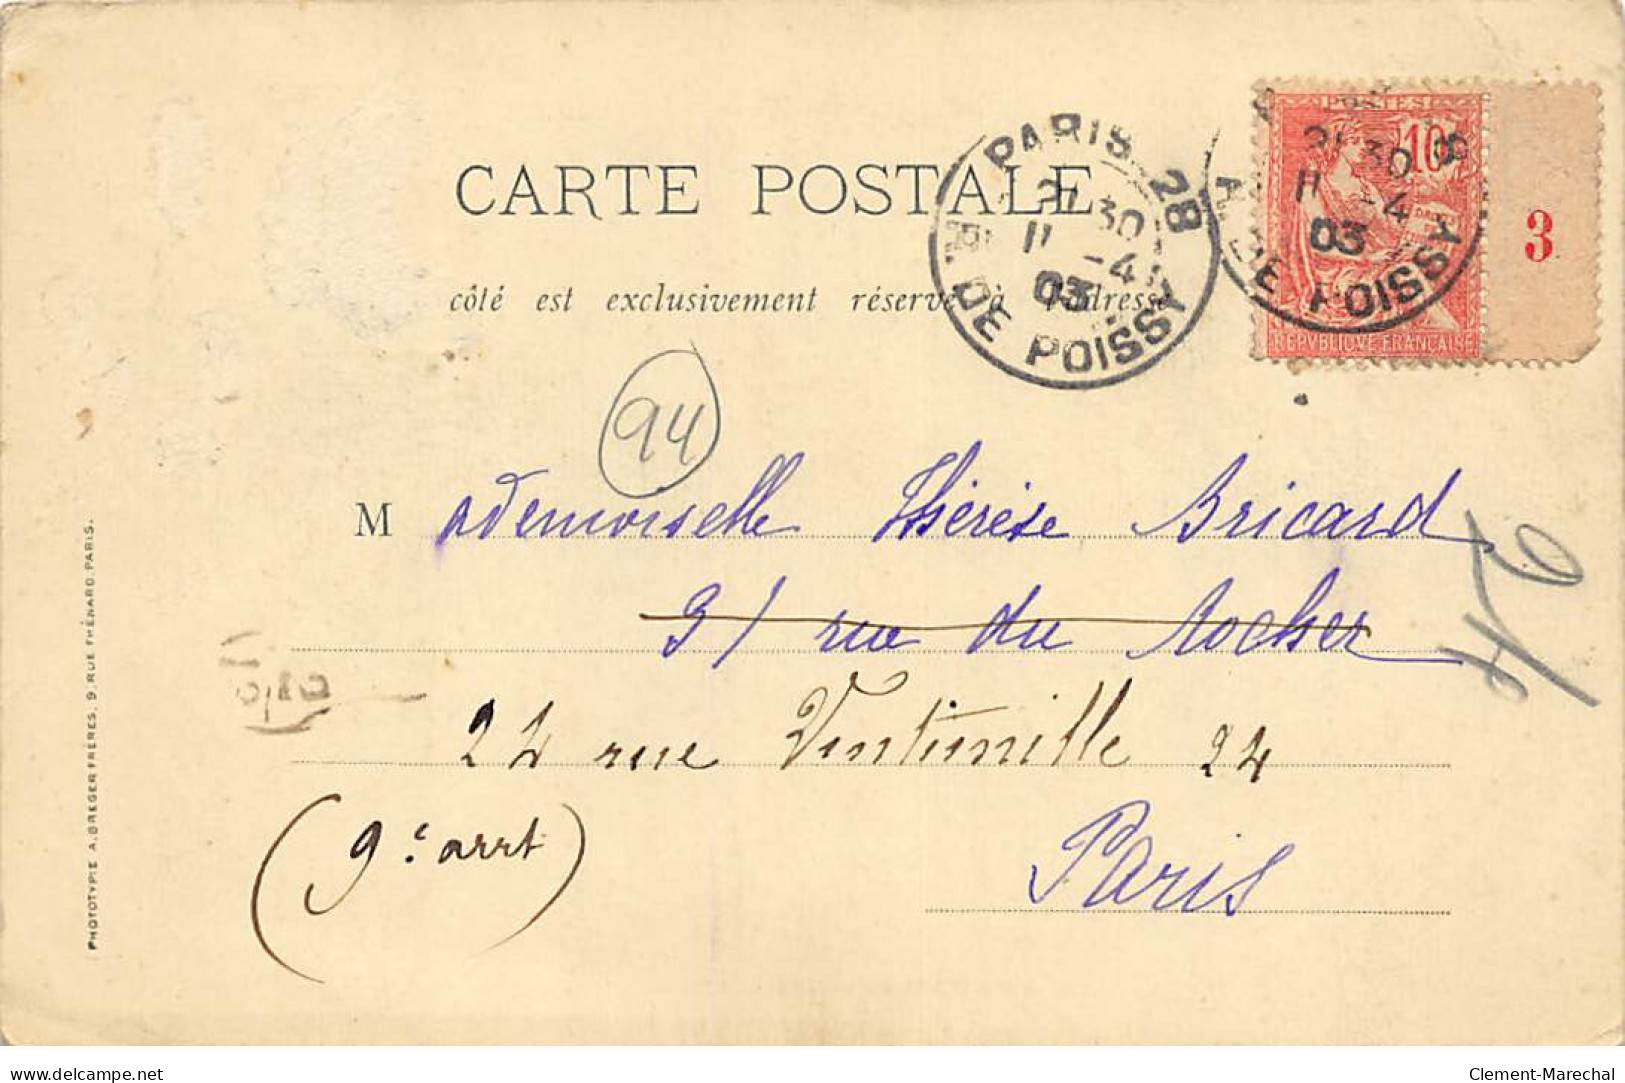 CARTE POSTALE
côté est exclusivement réservé à l'adresse
PARIS 28
21 30
11 -4
03
R. DE POISSY
POSTES
10
21 30
11 -4
03
R. DE POISSY
REPVBLIQVE FRANÇAISE
3
94
Mademoiselle Thérèse Bricard
31 rue du Rocher
24 rue Vintimille 24
(9e arrt)
Paris
PHOTOTYPIE A. BREGER FRÈRES. 9 RUE THÉNARD. PARIS.
delcampe.net
Clement-Marechal